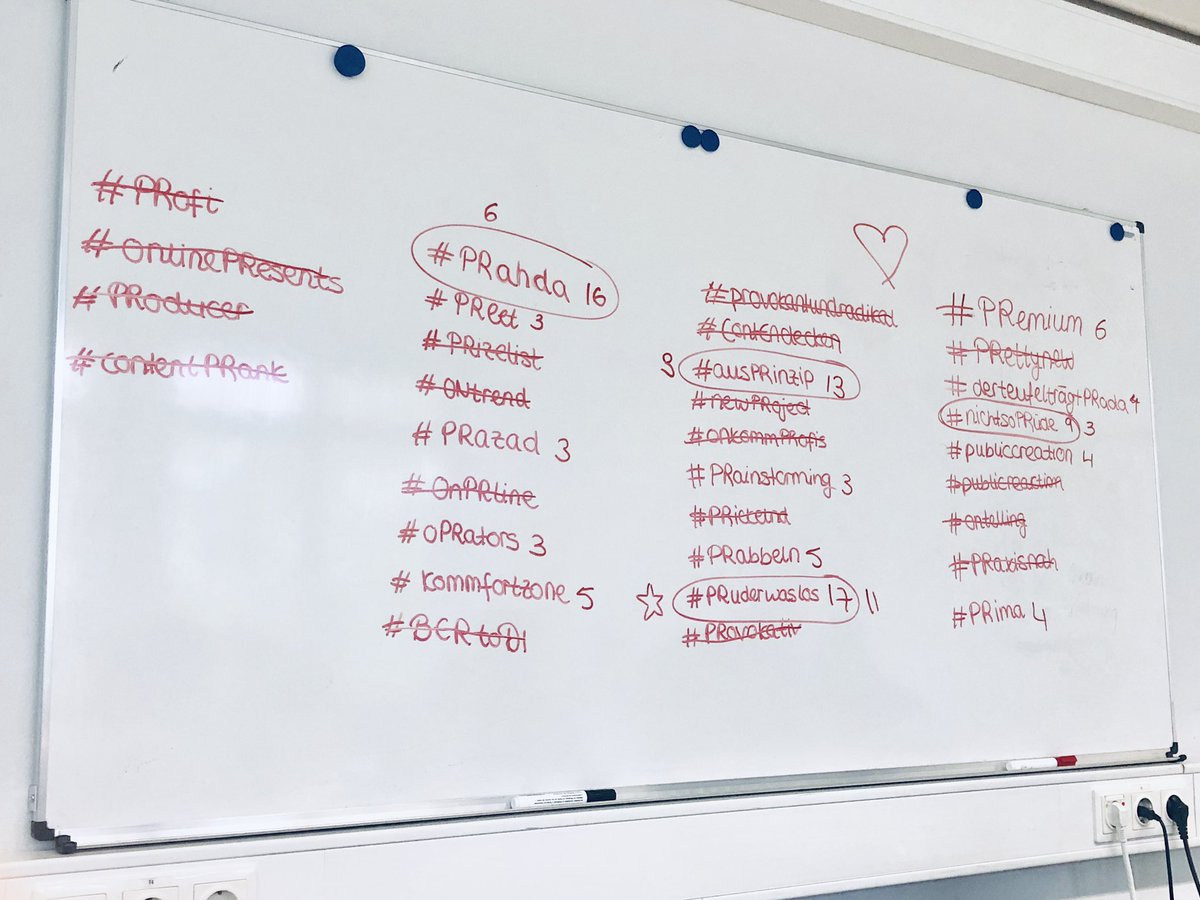 #PRofi
#onlinePResents
#PRoducer
#contentPRank
6
#PRahda 16
#PReet 3
#PRizelist
#ONtrend
#PRazad 3
#OnPRline
#oPRators 3
#kommfortzone 5
#BCRtoDI
#provokantundradikal
#Contendecken
9 #ausPRinzip 13
#newPRoject
#onkommPRofis
#PRainstorming 3
#PRabbeln 5
#PRuderwaslos 17 11
#PRovokativ
#PRemium 6
#PRettynew
#derteufelträgtPRada 4
#nichtsoPRüde 9 3
#publiccreation 4
#publicreaction
#ontelling
#PRaxisnah
#PRima 4